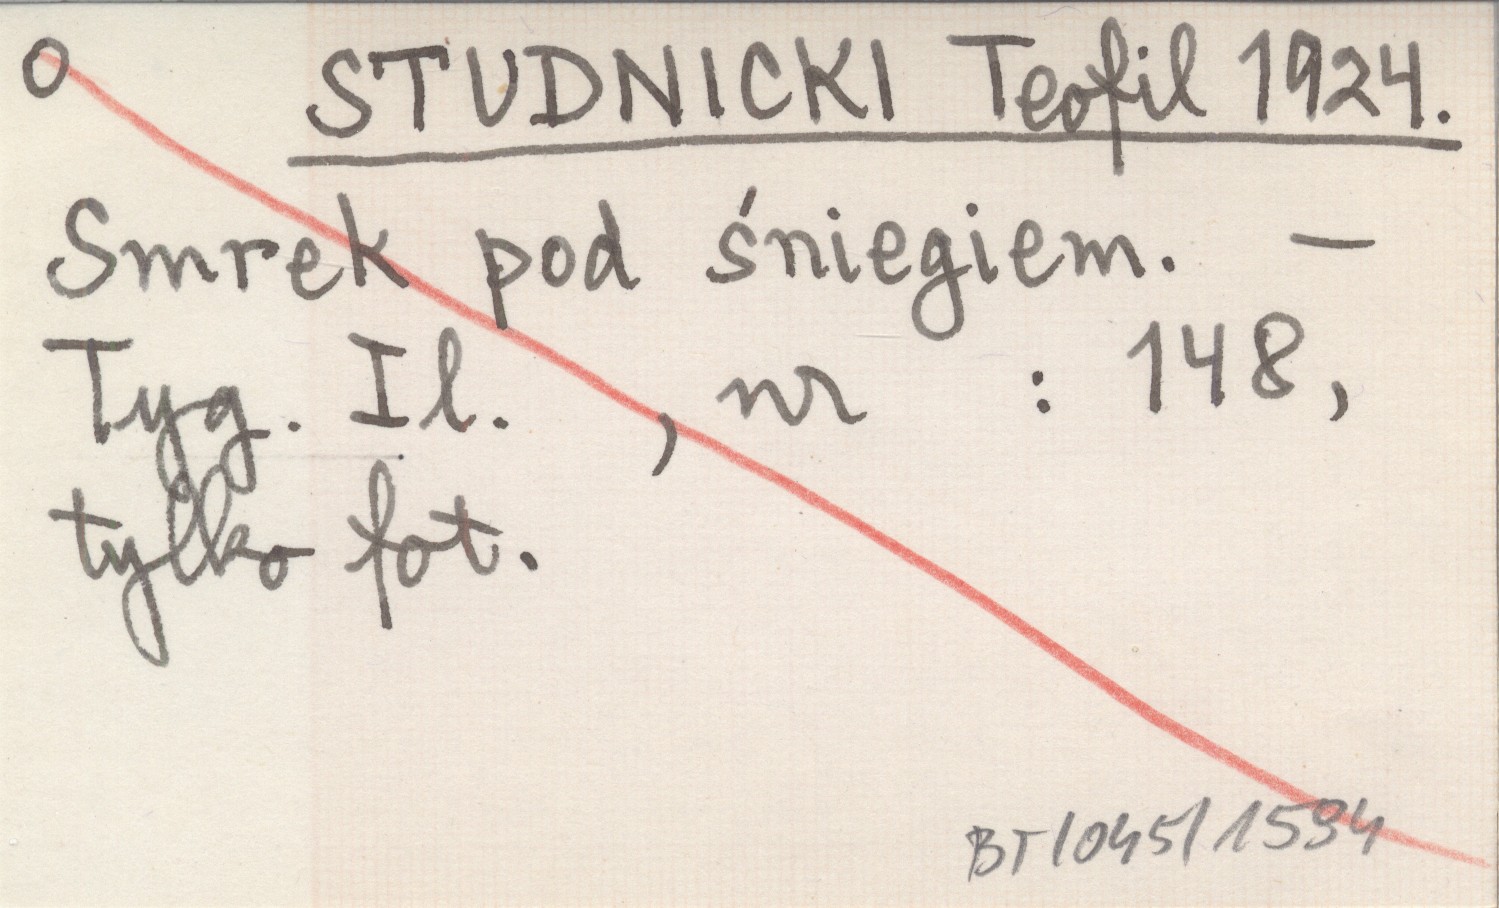 O STUDNICKI Teofil 1924.
Smrek pod śniegiem. —
Tyg. Il. , nr : 148,
tylko fot.
BT/045/1594